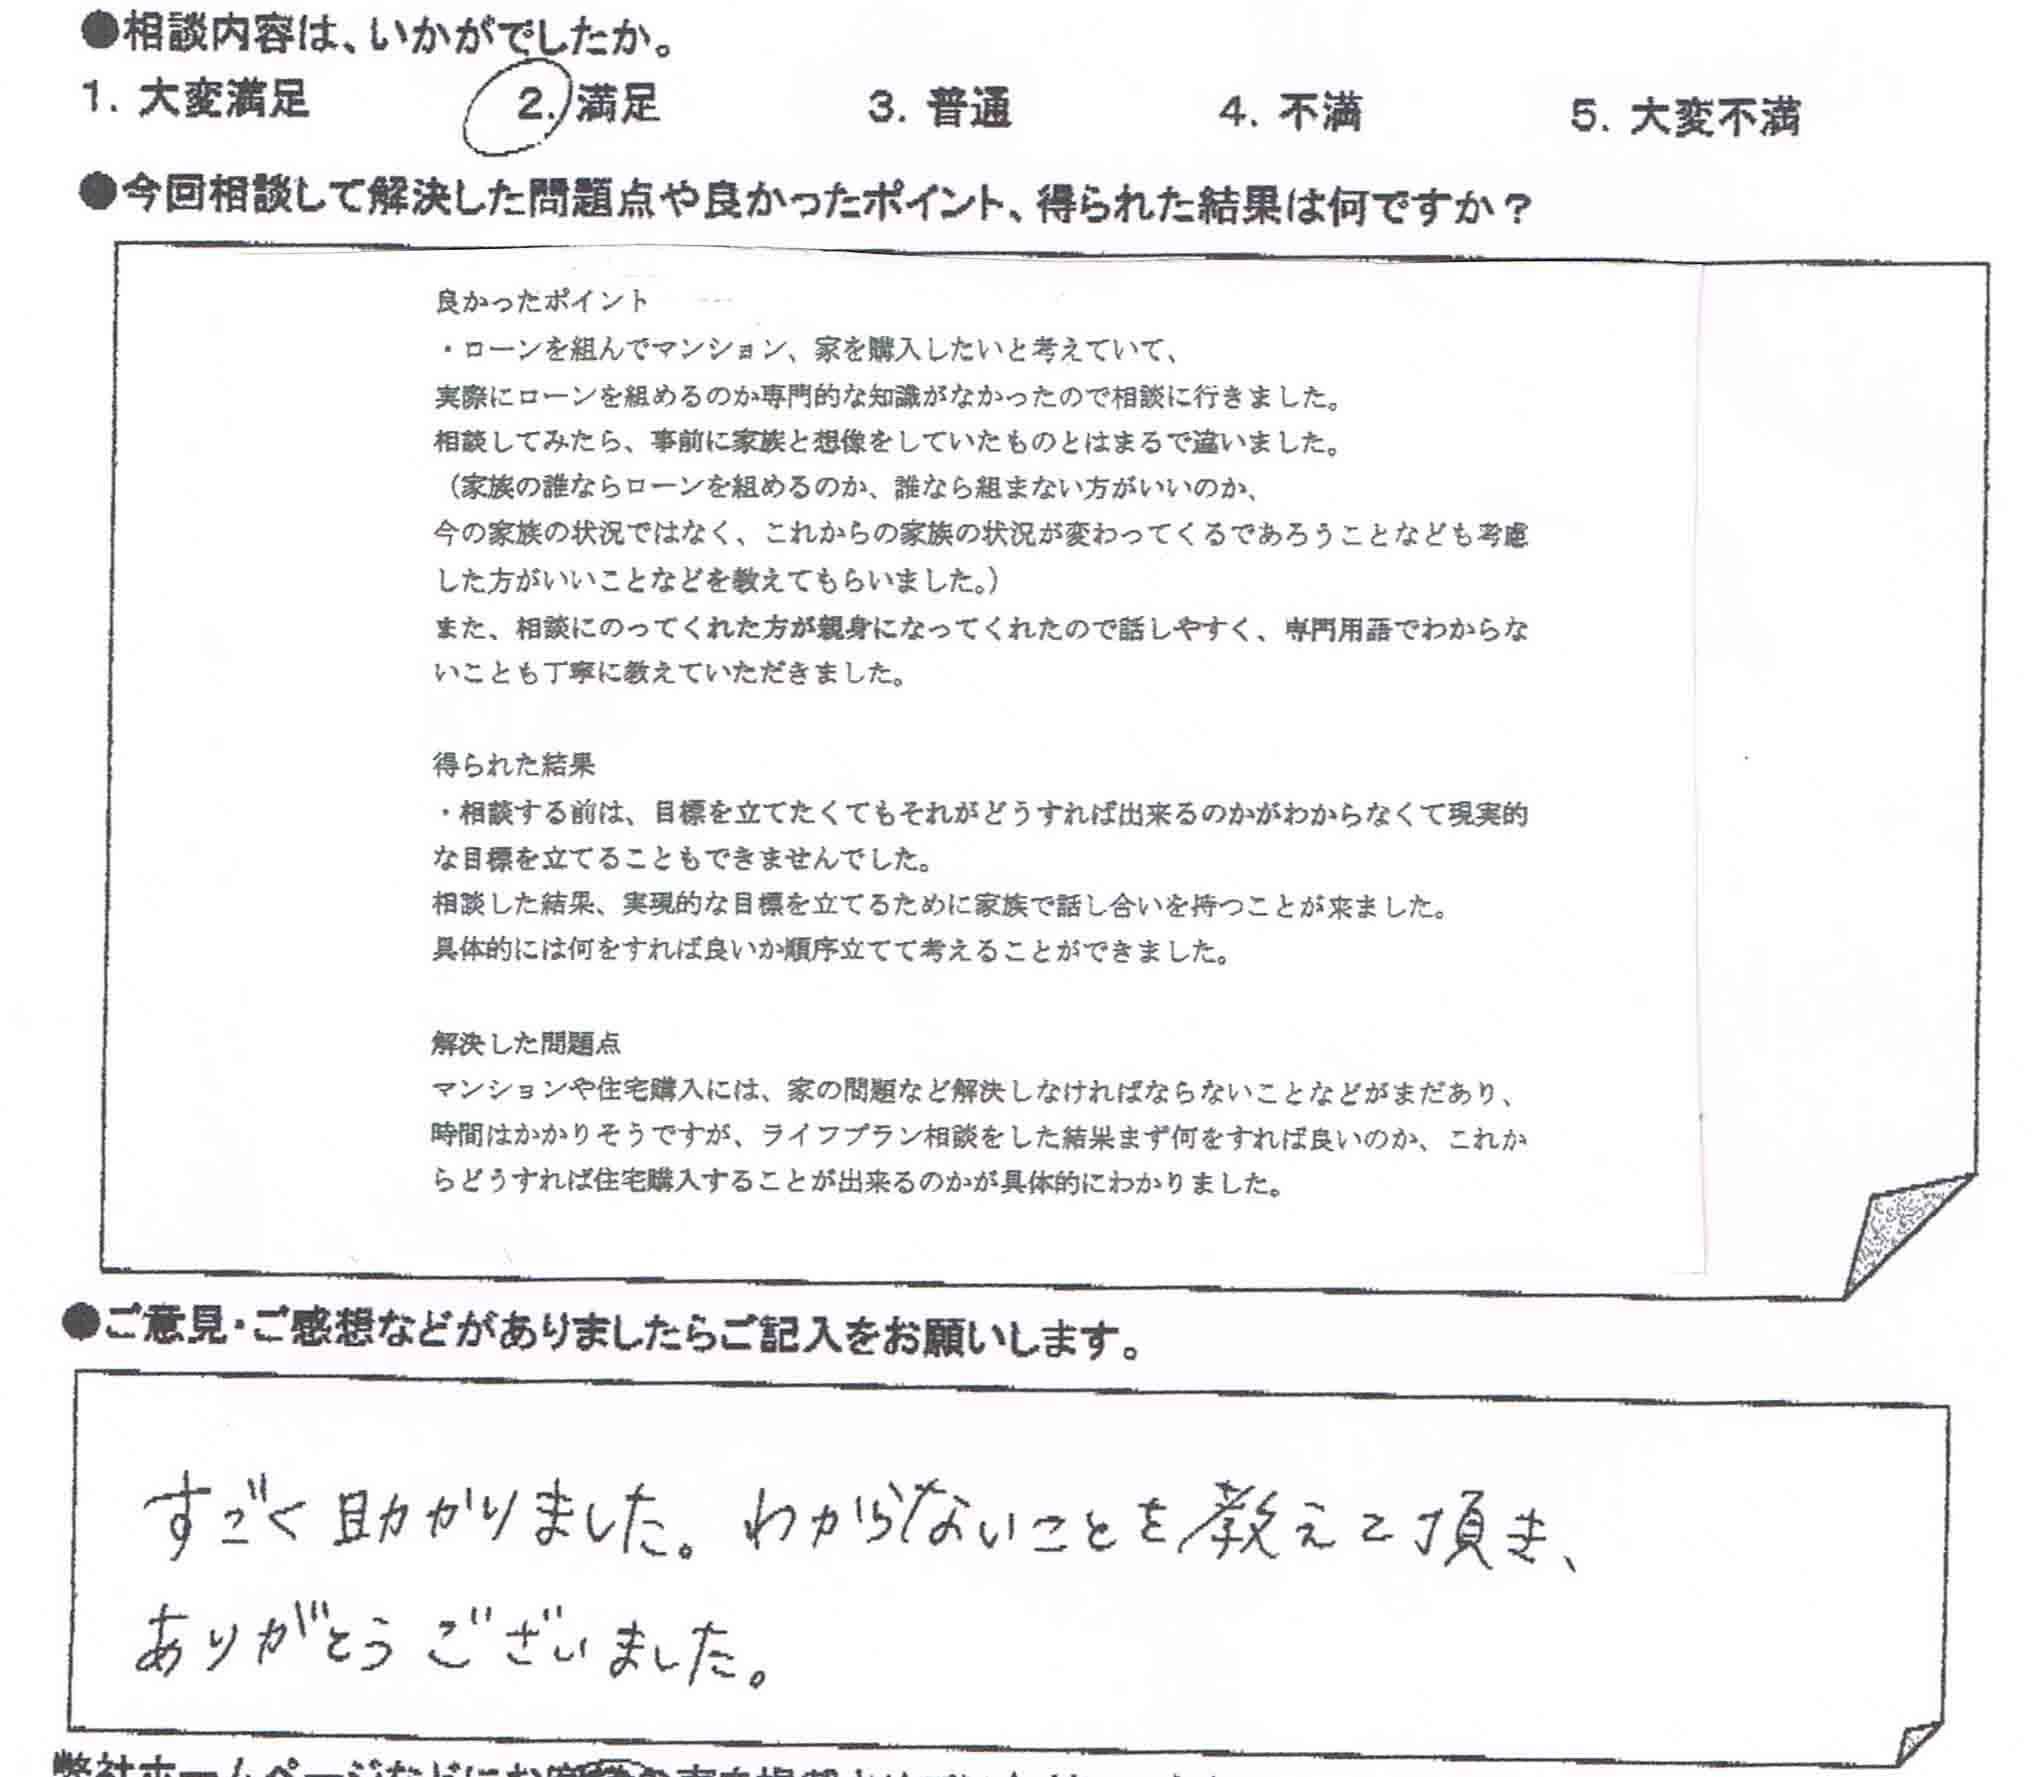 ●相談内容は、いかがでしたか。
1. 大変満足 2. 満足 3. 普通 4. 不満 5. 大変不満
●今回相談して解決した問題点や良かったポイント、得られた結果は何ですか？
良かったポイント
・ローンを組んでマンション、家を購入したいと考えていて、
実際にローンを組めるのか専門的な知識がなかったので相談に行きました。
相談してみたら、事前に家族と想像をしていたものとはまるで違いました。
（家族の誰ならローンを組めるのか、誰なら組まない方がいいのか、
今の家族の状況ではなく、これからの家族の状況が変わってくるであろうことなども考慮
した方がいいことなどを教えてもらいました。）
また、相談にのってくれた方が親身になってくれたので話しやすく、専門用語でわからな
いことも丁寧に教えていただきました。
得られた結果
・相談する前は、目標を立てたくてもそれがどうすれば出来るのかがわからなくて現実的
な目標を立てることもできませんでした。
相談した結果、実現的な目標を立てるために家族で話し合いを持つことが来ました。
具体的には何をすれば良いか順序立てて考えることができました。
解決した問題点
マンションや住宅購入には、家の問題など解決しなければならないことなどがまだあり、
時間はかかりそうですが、ライフプラン相談をした結果まず何をすれば良いのか、これか
らどうすれば住宅購入することが出来るのかが具体的にわかりました。
●ご意見・ご感想などがありましたらご記入をお願いします。
すごく助かりました。わからないことを教えて頂き、
ありがとうございました。
弊社ホームページなどにお客様の声を掲載